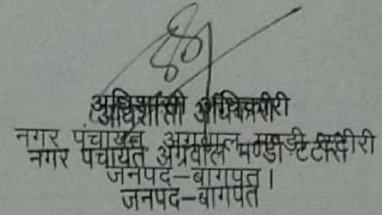 अधिशासी अधिकारी
नगर पंचायत अग्रवाल मण्डी टटीरी
नगर पंचायत अग्रवाल मण्डी टटीरी
जनपद-बागपत।
जनपद-बागपत